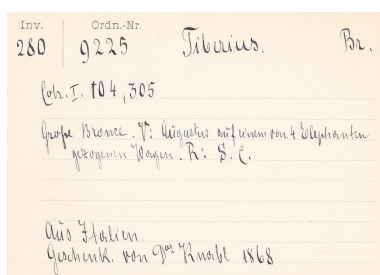 Inv. Ordn.-Nr.
280 9225 Tiberius. Br.
Coh. I. 104, 305
Große Bronce. V: Augustus auf einem von 4 Elephanten
gezogenen Wagen. R: S. C.
Aus Italien.
Geschenk von Knabl 1868